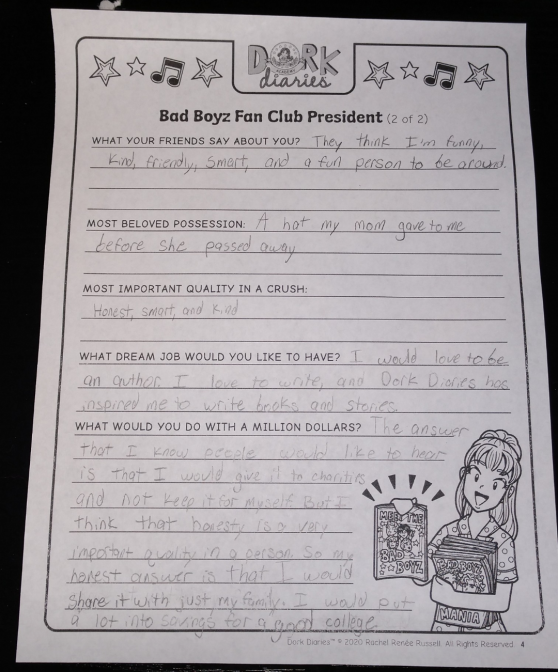 DORK
diaries
Bad Boyz Fan Club President (2 of 2)
WHAT YOUR FRIENDS SAY ABOUT YOU? They think I'm funny,
kind, friendly, smart, and a fun person to be around.
MOST BELOVED POSSESSION: A hat my mom gave to me
before she passed away
MOST IMPORTANT QUALITY IN A CRUSH:
Honest, smart, and kind
WHAT DREAM JOB WOULD YOU LIKE TO HAVE? I would love to be
an author. I love to write, and Dork Diaries has
inspired me to write books and stories.
WHAT WOULD YOU DO WITH A MILLION DOLLARS? The answer
that I know people would like to hear
is that I would give it to charities
and not keep it for myself. But I
think that honesty is a very
important quality in a person. So my
honest answer is that I would
share it with just my family. I would put
a lot into savings for a good college
MEET THE
BAD
BOYZ
BAD BOYZ
MANIA
Dork Diaries™ © 2020 Rachel Renée Russell. All Rights Reserved. 4